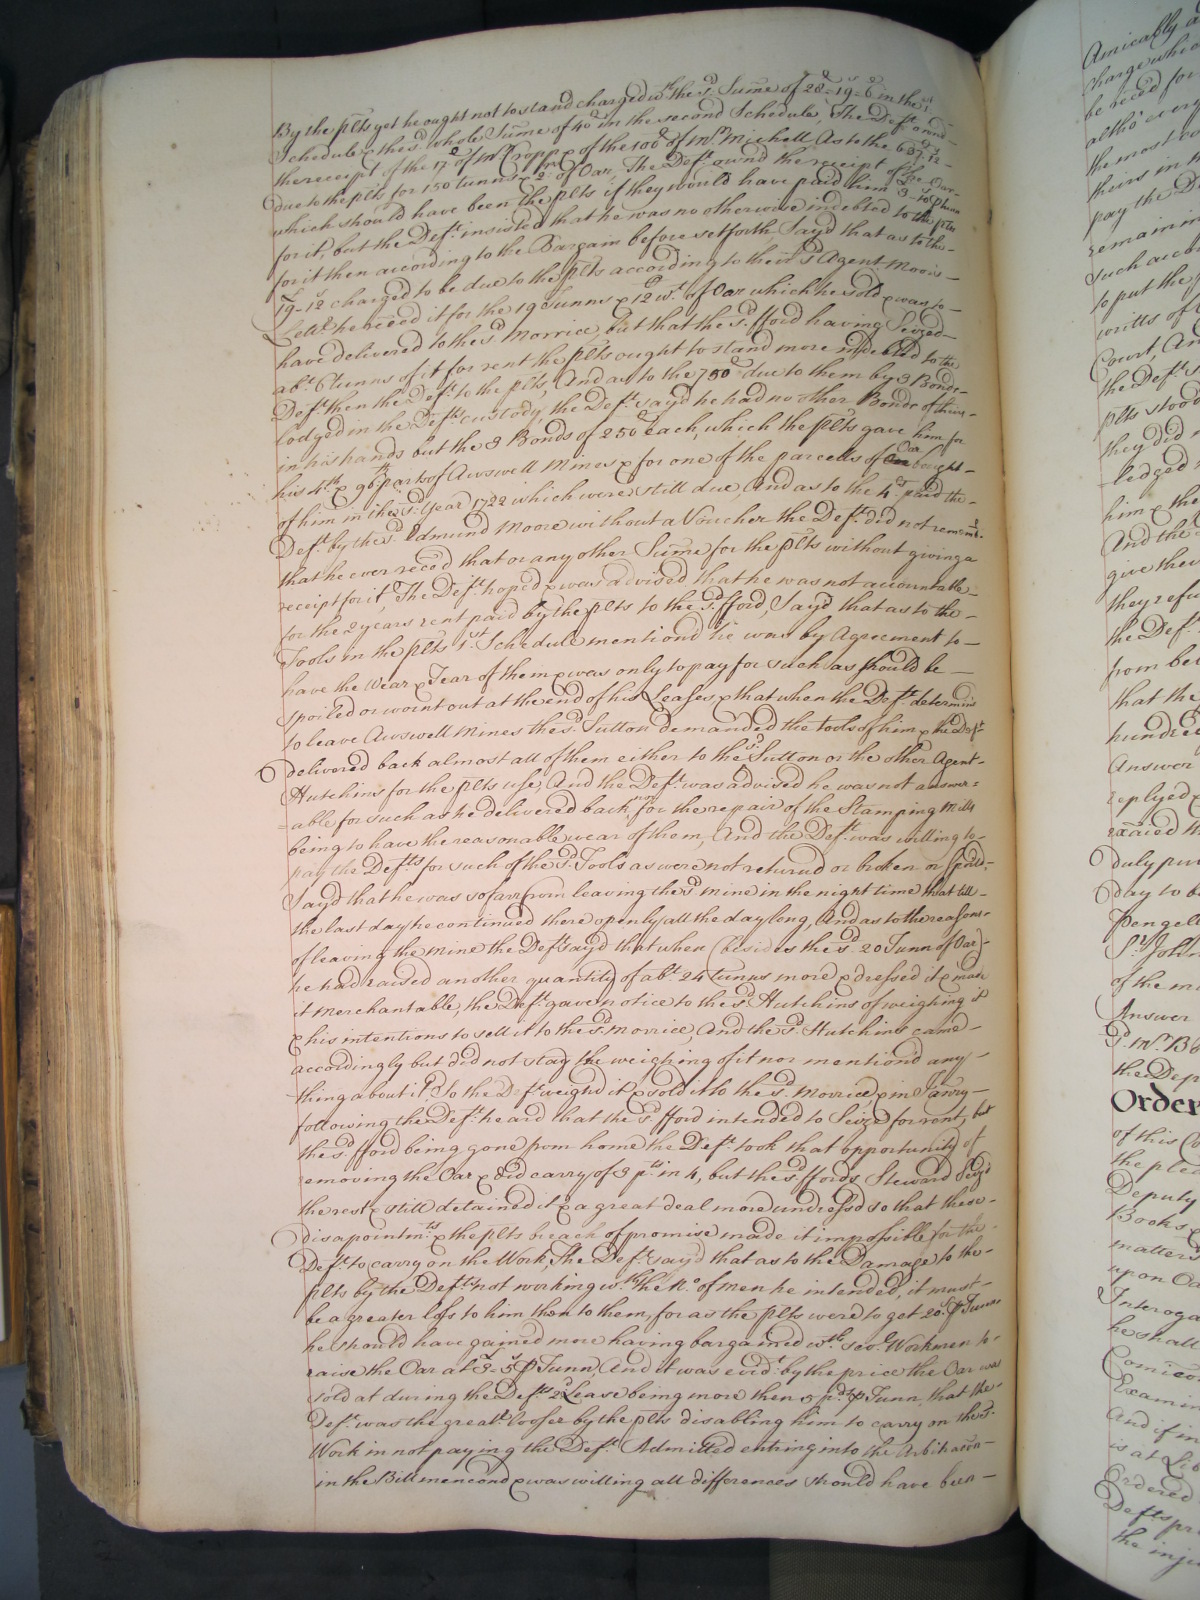 By the plts yet he ought not to stand charged wth the sd Sume of 28-19-6 in the 1st
Schedule & the sd whole Sume of 40l in the second Schedule, The Deft ownd
the receipt of the 17l of Mr Cropp & of the 100l of Mr Michell As to the 637-12-
due to the plts for 150 tunns & 2 of Oar, The Deft ownd the receipt of the Oar
which should have been the plts if they would have paid him 3-10 p tunn
for it, but the Deft insisted that he was no otherwise indebted to the plts
for it then according to the Bargain before setforth Sayd that as to the
19-12 charged to be due to the plts according to their sd Agent Moors
Letter he reced it for the 19 tunns & 12 wt of Oar which he sold & was to
have delivered to the sd Morrice, but that the sd fford having Seized
abt 6 tunns of it for rent the plts ought to stand more indebted to the
Deft then the Deft to the plts, And as to the 750l due to them by 3 Bonds
lodged in the Defts custody, the Deft sayd he had no other Bonds of theirs
in his hands but the 3 Bonds of 250l each, which the plts gave him for
his 4th & 96th parts of Awswell Mines & for one of the parcells of Oar bought
of him in the sd Year 1722 which were still due, And as to the 4l paid the
Deft by the sd Edmund Moore without a Voucher the Deft did not rememb
that he ever reced that or any other Sume for the plts without giving a
receipt for it, The Deft hoped & was advised that he was not accountable
for the 2 years rent paid by the plts to the sd fford, Sayd that as to the
Tools in the plts 1st Schedule mentiond he was by Agreement to
have the Wear & Tear of them & was only to pay for such as should be
spoiled or wornt out at the end of his Leases & that when the Deft determind
to leave Awswell Mines the sd Sutton demanded the tools of him & the Deft
delivered back almost all of them either to the sd Sutton or the other Agent
Hutchins for the plts use, And the Deft was advised he was not answer=
=able for such as he delivered back, nor for the repair of the Stamping Mills
being to have the reasonable wear of them, And the Deft was willing to
pay the Defts for such of the sd Tools as were not returnd or broken or spoild
Sayd that he was so farr from leaving the sd mine in the night time that till
the last day he continued there openly all the day long, And as to the reasons
of leaving the mine the Deft sayd that when (besides the sd 20 Tunn of Oar)
he had raised another quantity of abt 24 tunns more & dressed it & made
it Merchantable, the Deft gave notice to the sd Hutchins of weighing it
& his intentions to sell it to the sd Morrice, And the sd Hutchins came
accordingly but did not stay the weighing of it nor mentiond any
thing about it, So the Deft weighd it & sold it to the sd Morrice, & in Janry
following the Deft heard that the sd fford intended to Seize for rent, but
the sd fford being gone from home the Deft took that opportunity of
removing the Oar & did carry of 3 pts in 4, but the sd ffords Steward Seizd
the rest & still detained it & a great deal more undressd so that these
disapointmts & the plts breach of promise made it impossible for the
Deft to carry on the Work, The Deft sayd that as to the Damage to the
plts by the Defts not working wth the No of men he intended, it must
be a greater loss to him then to them, for as the plts were to get 20s p Tunn
he should have gained more having bargained wth sevl Workmen to
raise the Oar at 3-5 p Tunn, And it was evidt by the price the Oar was
sold at during the Defts 2d Lease being more then 5 pds p Tunn, that the
Deft was the greatt looser by the plts disabling him to carry on the sd
Work in not paying the Deft Admitted entring into the Arbitracon
in the Bill mencond & was willing all differences should have been
Amicably
charge which
be reced for
altho' every
the most
theirs in
pay the D
remaining
such acco
to put the
writts of
Court, An
the Deft s
plts stood
they did n
ledged
him & the
And the
give them
they refu
the Deft
from ber
that the
hundred
Answer
replyed
duly pu
day to
Pengell
Sr John
of the m
Answer
Sd Mr B
the Dep
Order
of this Co
the plea
Deputy
Books
matters
upon Oa
Interoga
he shall
Examin
And if in
is at Lib
Ordered
Defts pr
the inju